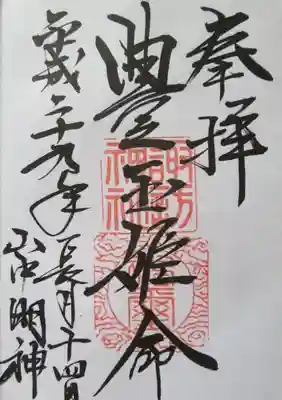 奉拝
豊玉姫命
平成二十九年長月十四日
明神
神社